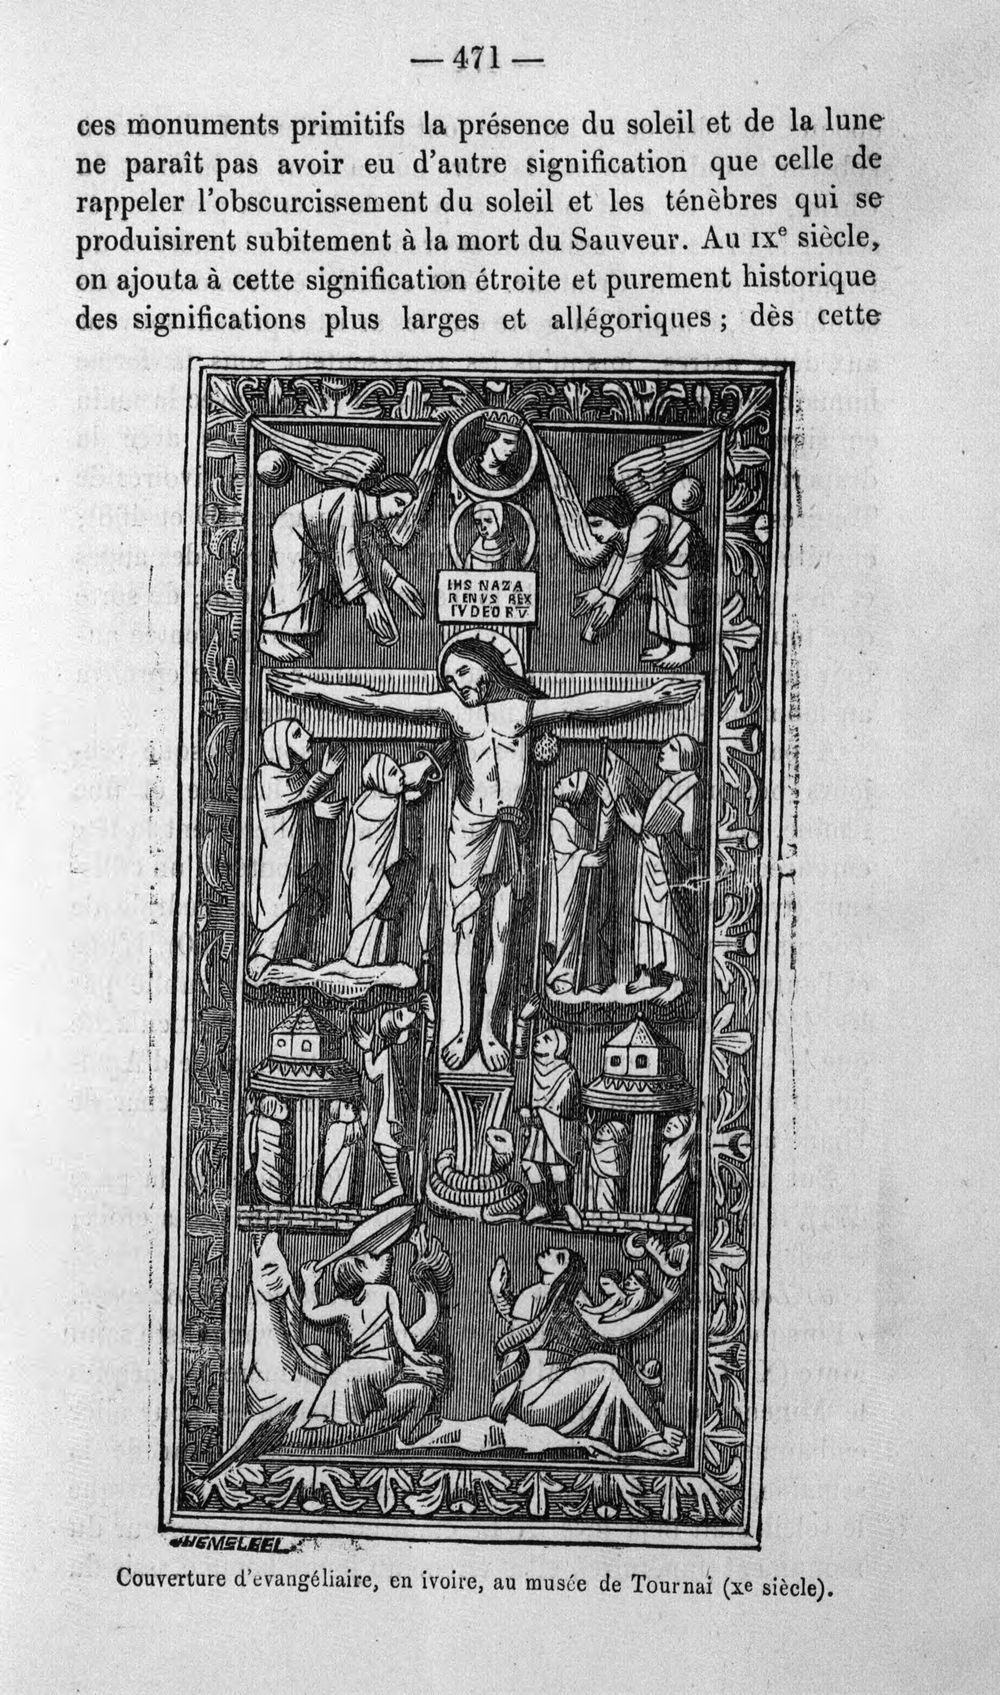 — 471 —
ces monuments primitifs la présence du soleil et de la lune
ne paraît pas avoir eu d'autre signification que celle de
rappeler l'obscurcissement du soleil et les ténèbres qui se
produisirent subitement à la mort du Sauveur. Au IXe siècle,
on ajouta à cette signification étroite et purement historique
des significations plus larges et allégoriques ; dès cette
IHS NAZA
RENVS REX
IVDEORV
Couverture d'évangéliaire, en ivoire, au musée de Tournai (xe siècle).